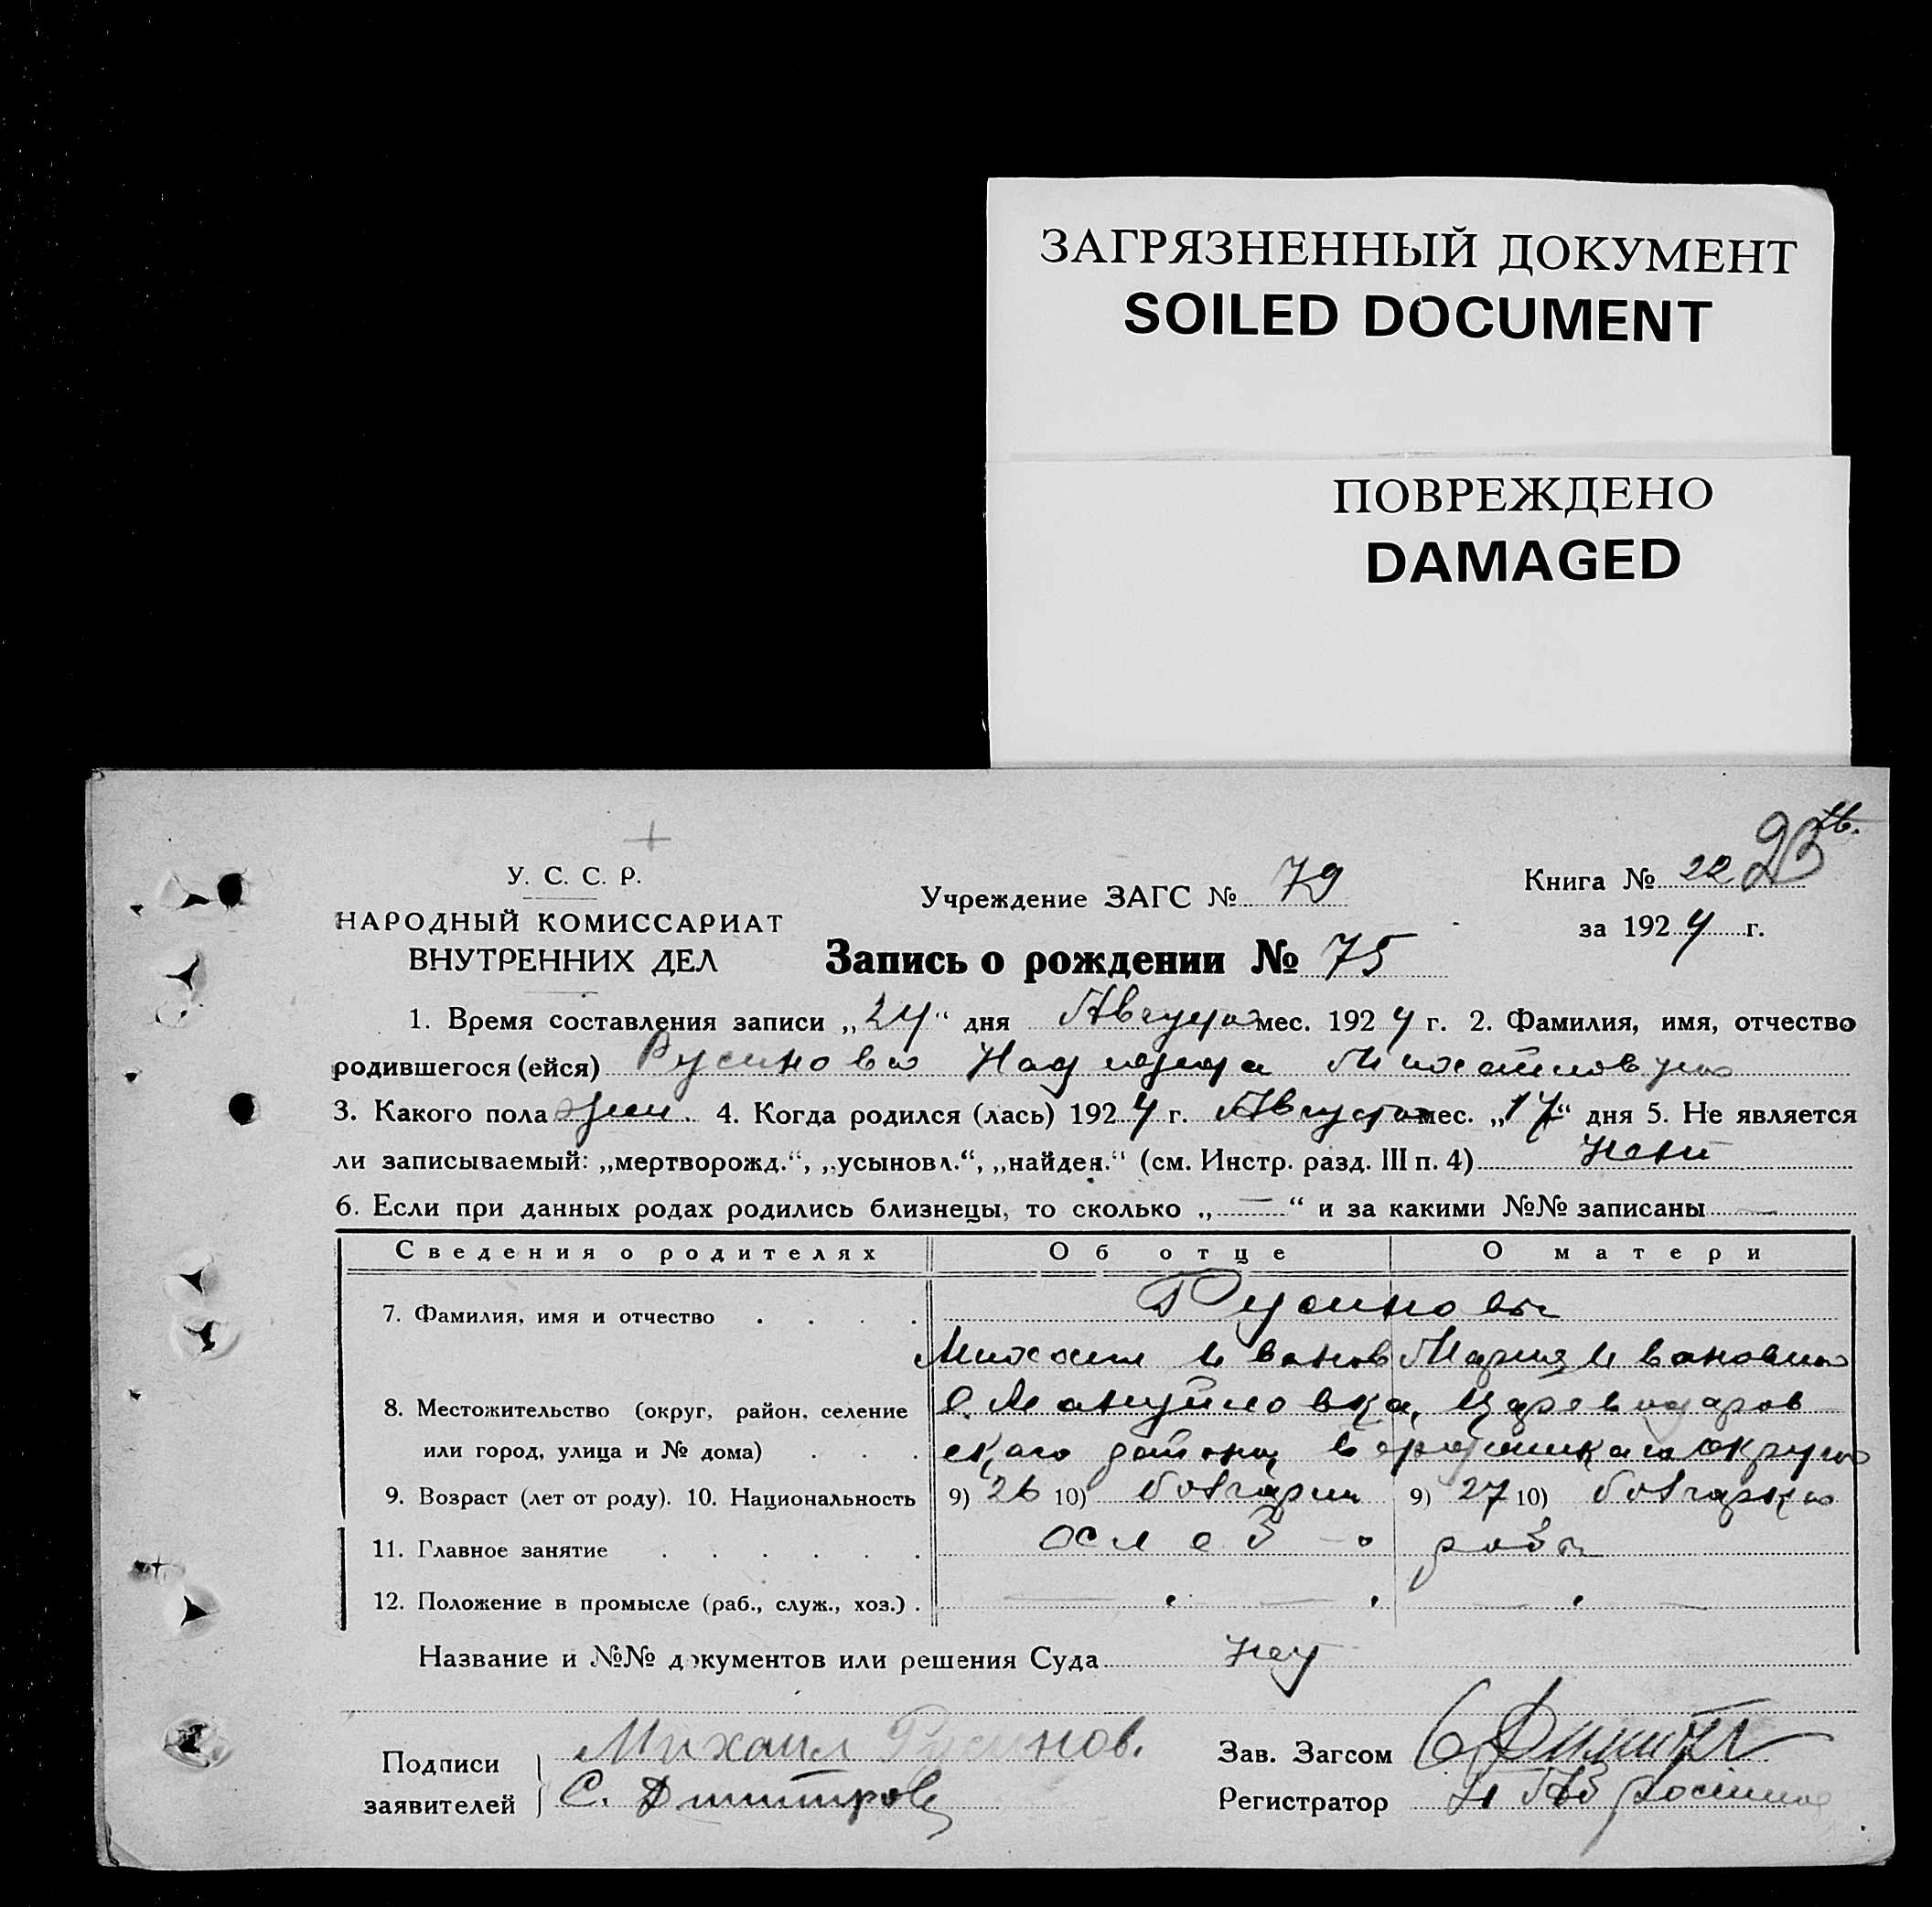 ЗАГРЯЗНЕННЫЙ ДОКУМЕНТ
SOILED DOCUMENT
ПОВРЕЖДЕНО
DAMAGED
23
У. С. С. Р.
НАРОДНЫЙ КОМИССАРИАТ
ВНУТРЕННИХ ДЕЛ
Учреждение ЗАГС № 79
Книга № 22
за 1924 г.
Запись о рождении № 75
1. Время составления записи „24“ дня Августа мес. 1924 г. 2. Фамилия, имя, отчество
родившегося (ейся) Русинова Надежда Михайловна
3. Какого пола жен. 4. Когда родился (лась) 1924 г. Августа мес. „17“ дня 5. Не является
ли записываемый: „мертворожд.“, „усыновл.“, „найден.“ (см. Инстр. разд. III п. 4) нет
6. Если при данных родах родились близнецы, то сколько „—“ и за какими №№ записаны —
Сведения о родителях Об отце О матери
7. Фамилия, имя и отчество Русиновы
Михаил Иванов Мария Ивановна
8. Местожительство (округ, район, селение с. Мануйловка,
или город, улица и № дома) ского района округа
9. Возраст (лет от роду). 10. Национальность 9) 26 10) болгарин 9) 27 10) болгарка
11. Главное занятие
12. Положение в промысле (раб., служ., хоз.)
Название и №№ документов или решения Суда нет
Подписи заявителей Михаил Русинов.
С. Дмитров
Зав. Загсом
Регистратор